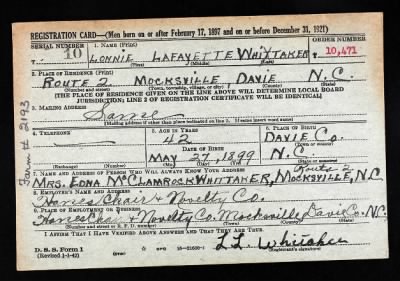 REGISTRATION CARD—(Men born on or after February 17, 1897 and on or before December 31, 1921)
SERIAL NUMBER 1. NAME (Print) ORDER NUMBER
10 LONNIE LAFAYETTE WHITTAKER 10,471
(First) (Middle) (Last)
2. PLACE OF RESIDENCE (Print)
ROUTE 2 MOCKSVILLE, DAVIE N.C.
(Number and street) (Town, township, village, or city) (County) (State)
[THE PLACE OF RESIDENCE GIVEN ON THE LINE ABOVE WILL DETERMINE LOCAL BOARD
JURISDICTION; LINE 2 OF REGISTRATION CERTIFICATE WILL BE IDENTICAL]
3. MAILING ADDRESS
Same
[Mailing address if other than place indicated on line 2. If same insert word same]
4. TELEPHONE 5. AGE IN YEARS 6. PLACE OF BIRTH
42 DAVIE CO.
DATE OF BIRTH (Town or county)
MAY 27, 1899 N.C.
(Exchange) (Number) (Mo.) (Day) (Yr.) (State or country)
7. NAME AND ADDRESS OF PERSON WHO WILL ALWAYS KNOW YOUR ADDRESS Route 2
MRS. EDNA MCCLAMROCK WHITTAKER, MOCKSVILLE, N.C
8. EMPLOYER'S NAME AND ADDRESS
Hanes Chair & Novelty Co.
9. PLACE OF EMPLOYMENT OR BUSINESS
Hanes Chair & Novelty Co. Mocksville, Davie Co. N.C.
(Number and street or R. F. D. number) (Town) (County) (State)
I AFFIRM THAT I HAVE VERIFIED ABOVE ANSWERS AND THAT THEY ARE TRUE.
D. S. S. Form 1
(Revised 1-1-42) GPO 16—21630-1 L.L. Whittaker
(Registrant's signature)